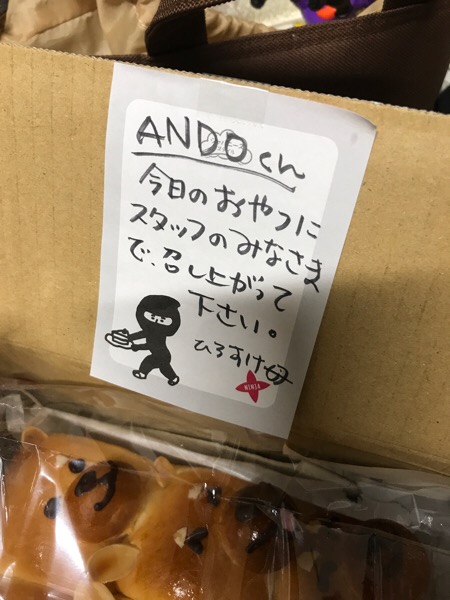 ANDOくん
今日のおやつに
スタッフのみなさま
で、召し上がって
下さい。
ひろすけ母
NINJA